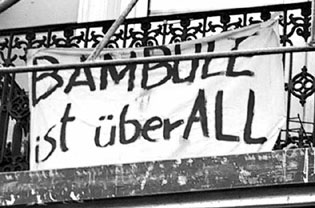 BAMBULE
ist überALL